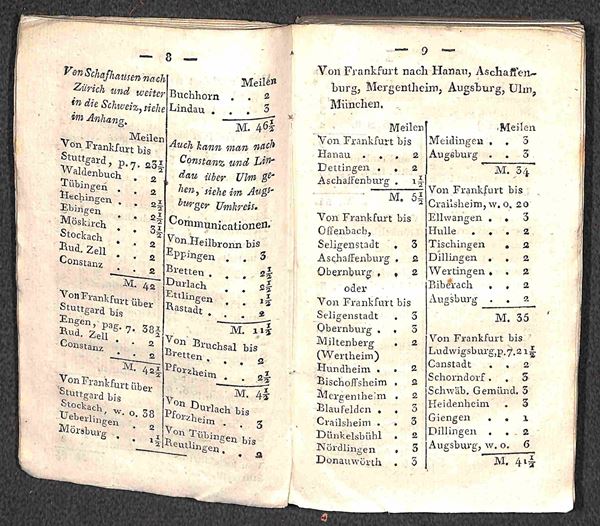 — 8 —
Von Schafhausen nach
Zürich und weiter
in die Schweiz, siehe
im Anhang.
Meilen
Von Frankfurt bis
Stuttgard, p. 7. 23½
Waldenbuch . 2
Tübingen . . 2
Hechingen . 2½
Ebingen . . 2½
Möskirch . . 3½
Stockach . . 2
Rud. Zell . . 2
Constanz . . 2
M. 42
Von Frankfurt über
Stuttgard bis
Engen, pag. 7. 38½
Rud. Zell . . 2
Constanz . . 2
M. 42½
Von Frankfurt über
Stuttgard bis
Stockach, w. o. 38
Ueberlingen . 2
Mörsburg . . 1½
Meilen
Buchhorn . . 2
Lindau . . 3
M. 46½
Auch kann man nach
Constanz und Lin-
dau über Ulm ge-
hen, siehe im Augs-
burger Umkreis.
Communicationen.
Von Heilbronn bis
Eppingen . . 3
Bretten . . 2½
Durlach . . 2½
Ettlingen . . 1½
Rastadt . . 2
M. 11½
Von Bruchsal bis
Bretten . . 2
Pforzheim . . 2½
M. 4½
Von Durlach bis
Pforzheim . . 3
Von Tübingen bis
Reutlingen . . 2
— 9 —
Von Frankfurt nach Hanau, Aschaffen-
burg, Mergentheim, Augsburg, Ulm,
München.
Meilen
Von Frankfurt bis
Hanau . . . 2
Dettingen . . 2
Aschaffenburg . 1½
M. 5½
Von Frankfurt bis
Offenbach,
Seligenstadt . 3
Aschaffenburg . 2
Obernburg . . 2
oder
Von Frankfurt bis
Seligenstadt . 3
Obernburg . . 3
Miltenberg . 2
(Wertheim)
Hundheim . . 2
Bischoffsheim . 2
Mergentheim . 2
Blaufelden . . 3
Crailsheim . . 3
Dünkelsbühl . 2
Nördlingen . 3
Donauwörth . 3
Meilen
Meidingen . . 3
Augsburg . . 3
M. 34
Von Frankfurt bis
Crailsheim, w. o. 20
Ellwangen . . 3
Hulle . . . 2
Tischingen . 2
Dillingen . . 2
Wertingen . . 2
Biberach . . 2
Augsburg . . 2
M. 35
Von Frankfurt bis
Ludwigsburg, p. 7. 21½
Canstadt . . 2
Schorndorf . . 3
Schwäb. Gemünd. 3
Heidenheim . 3
Giengen . . 1
Dillingen . . 2
Augsburg, w. o. 6
M. 41½